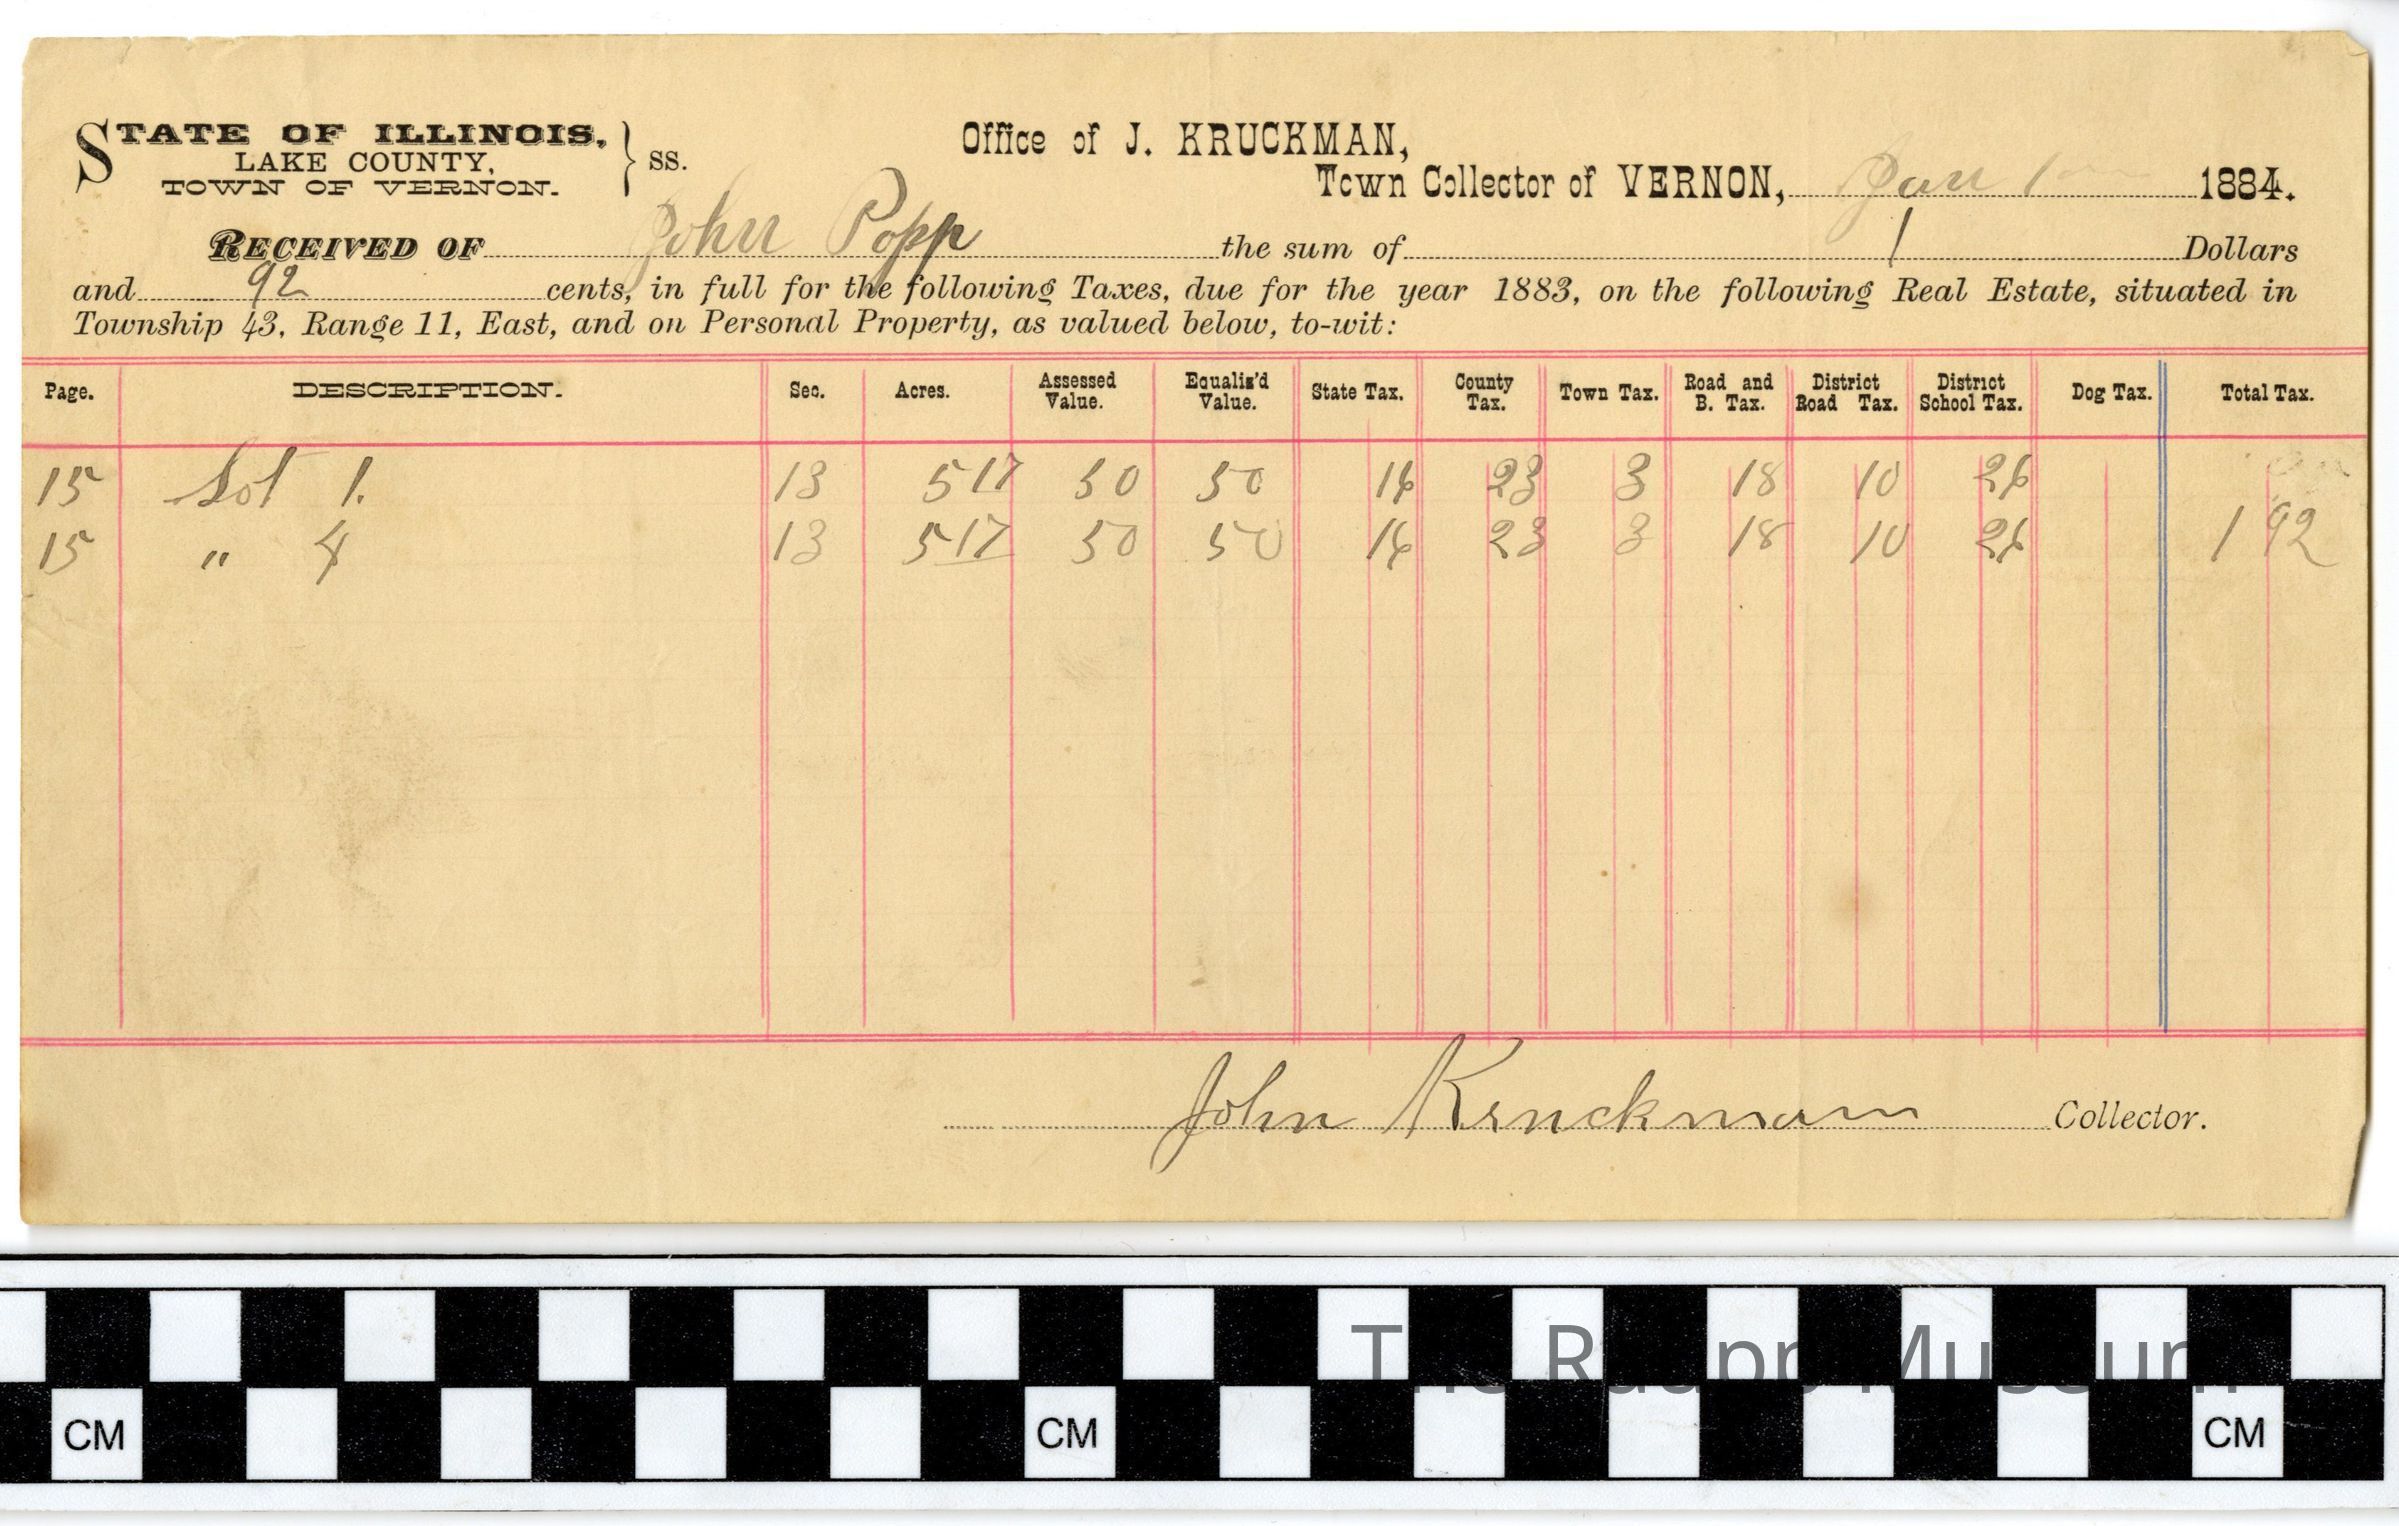 STATE OF ILLINOIS,
LAKE COUNTY,
TOWN OF VERNON.
} ss.
Office of J. KRUCKMAN,
Town Collector of VERNON, Jan 1 1884.
RECEIVED OF John Popp the sum of 1 Dollars
and 92 cents, in full for the following Taxes, due for the year 1883, on the following Real Estate, situated in
Township 43, Range 11, East, and on Personal Property, as valued below, to-wit:
Page. DESCRIPTION. Sec. Acres. Assessed Value. Equaliz'd Value. State Tax. County Tax. Town Tax. Road and B. Tax. District Road Tax. District School Tax. Dog Tax. Total Tax.
15 Lot 1. 13 5 17 50 50 16 23 3 18 10 26
15 " 4 13 5 17 50 50 16 23 3 18 10 26 1 92
John Kruckman Collector.
The Raupp Museum
CM CM CM